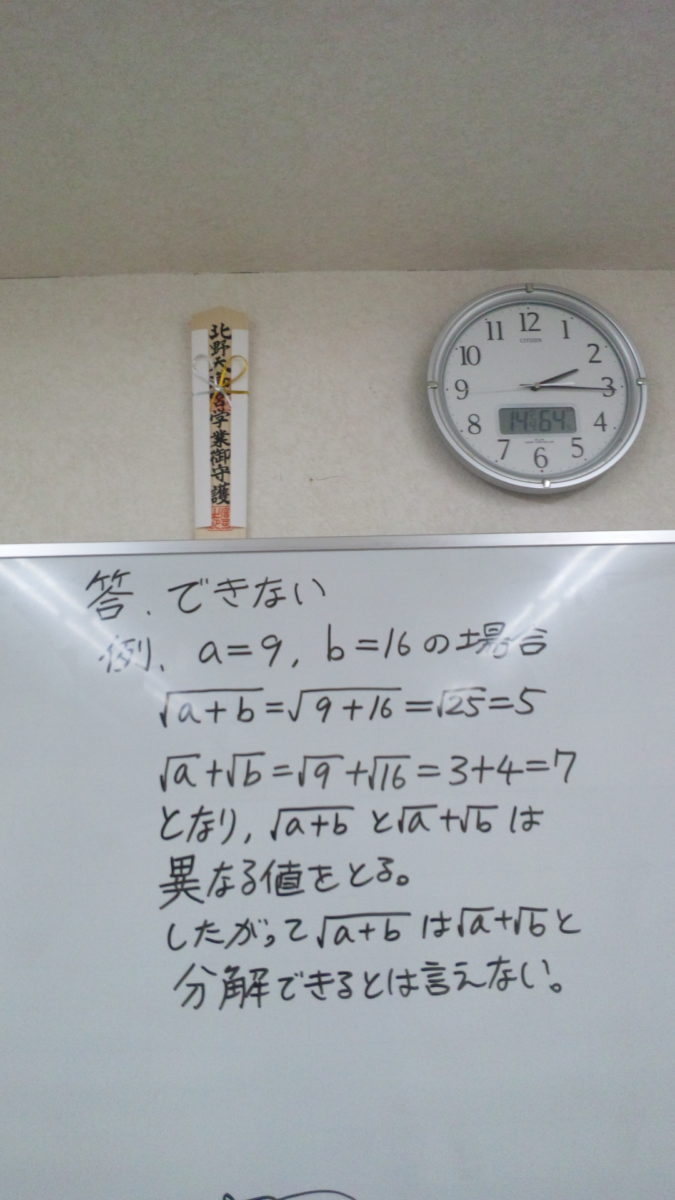 北野天満宮学業御守護
12
1
2
3
4
5
6
7
8
9
10
11
CITIZEN
答、できない
例、a=9, b=16の場合
√a+b=√9+16=√25=5
√a+√b=√9+√16=3+4=7
となり, √a+b と√a+√b は
異なる値をとる。
したがって√a+b は√a+√bと
分解できるとは言えない。